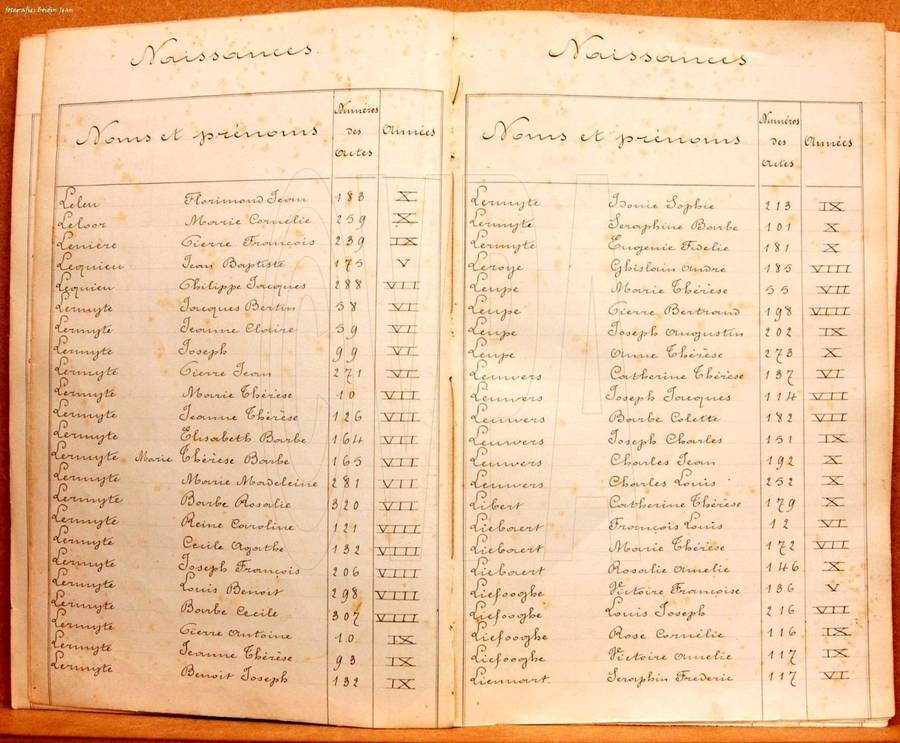 fotografie: beidin Jean
Naissances
Noms et prénoms Numéros des Actes Années
Leleu Florimond Jean 183 X
Leloor Marie Cornélie 259 X
Lenière Pierre François 239 IX
Lequieu Jean Baptiste 175 V
Lequieu Philippe Jacques 288 VII
Lermyte Jacques Bertin 58 VI
Lermyte Jeanne Claire 59 VI
Lermyte Joseph 99 VI
Lermyte Pierre Jean 271 VI
Lermyte Marie Thérèse 10 VII
Lermyte Jeanne Thérèse 126 VII
Lermyte Elisabeth Barbe 164 VII
Lermyte Marie Thérèse Barbe 165 VII
Lermyte Marie Madeleine 281 VII
Lermyte Barbe Rosalie 320 VII
Lermyte Reine Caroline 121 VIII
Lermyte Cecile Agathe 132 VIII
Lermyte Joseph François 206 VIII
Lermyte Louis Benoit 298 VIII
Lermyte Barbe Cecile 307 VIII
Lermyte Pierre Antoine 10 IX
Lermyte Jeanne Thérèse 93 IX
Lermyte Benoit Joseph 132 IX
Naissances
Noms et prénoms Numéros des Actes Années
Lermyte Isonie Sophie 213 IX
Lermyte Seraphine Barbe 101 X
Lermyte Eugenie Fidelie 181 X
Leroye Ghislain André 185 VIII
Leupe Marie Thérèse 55 VII
Leupe Pierre Bertrand 198 VIII
Leupe Joseph Augustin 202 IX
Leupe Anne Thérèse 273 X
Leuwers Catherine Thérèse 137 VI
Leuwers Joseph Jacques 114 VII
Leuwers Barbe Colette 182 VII
Leuwers Joseph Charles 151 IX
Leuwers Charles Jean 192 X
Leuwers Charles Louis 252 X
Libert Catherine Thérèse 179 X
Liebaert François Louis 12 VI
Liebaert Marie Thérèse 172 VII
Liebaert Rosalie Amelie 146 X
Liefooghe Victoire Françoise 136 V
Liefooghe Louis Joseph 216 VII
Liefooghe Rose Cornélie 116 IX
Liefooghe Victoire Amelie 117 IX
Liennart. Seraphin Frederic 117 VI